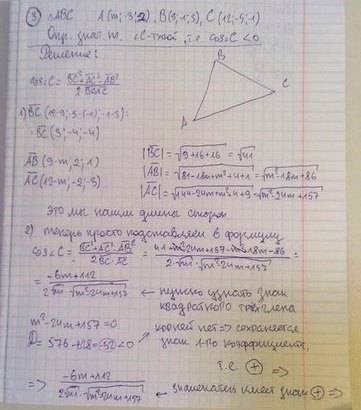 ③ △ABC A(m;-3;2), B(9;-1;3), C(12;-5;-1)
Опр. знач. m <C-тупой, т.е. cos<C < 0
Решение:
B
C
A
cos<C = BC²+AC²-AB² / 2·BC·AC
1) BC (12-9; -5-(-1); -1-3):
BC (3; -4; -4)
AB (9-m; 2; 1)
AC (12-m; -2; -3)
|BC| = √9+16+16 = √41
|AB| = √81-18m+m²+4+1 = √m²-18m+86
|AC| = √144-24m+m²+4+9 = √m²-24m+157
это мы нашли длины сторон
2) теперь просто подставляем в формулу
cos<C = BC²+AC²-AB² / 2·BC·AC = 41+m²-24m+157-m²+18m-86 / 2·√41·√m²-24m+157 =
= -6m+112 / 2√41·√m²-24m+157 ← нужно узнать знак
квадратного трёхчлена
m²-24m+157=0
D = 576-628=-52<0
корней нет => сохраняется
знак 1-го коэффициента,
т.е. ⊕ =>
=> -6m+112 / 2√41·√m²-24m+157 ← знаменатель имеет знак ⊕ =>